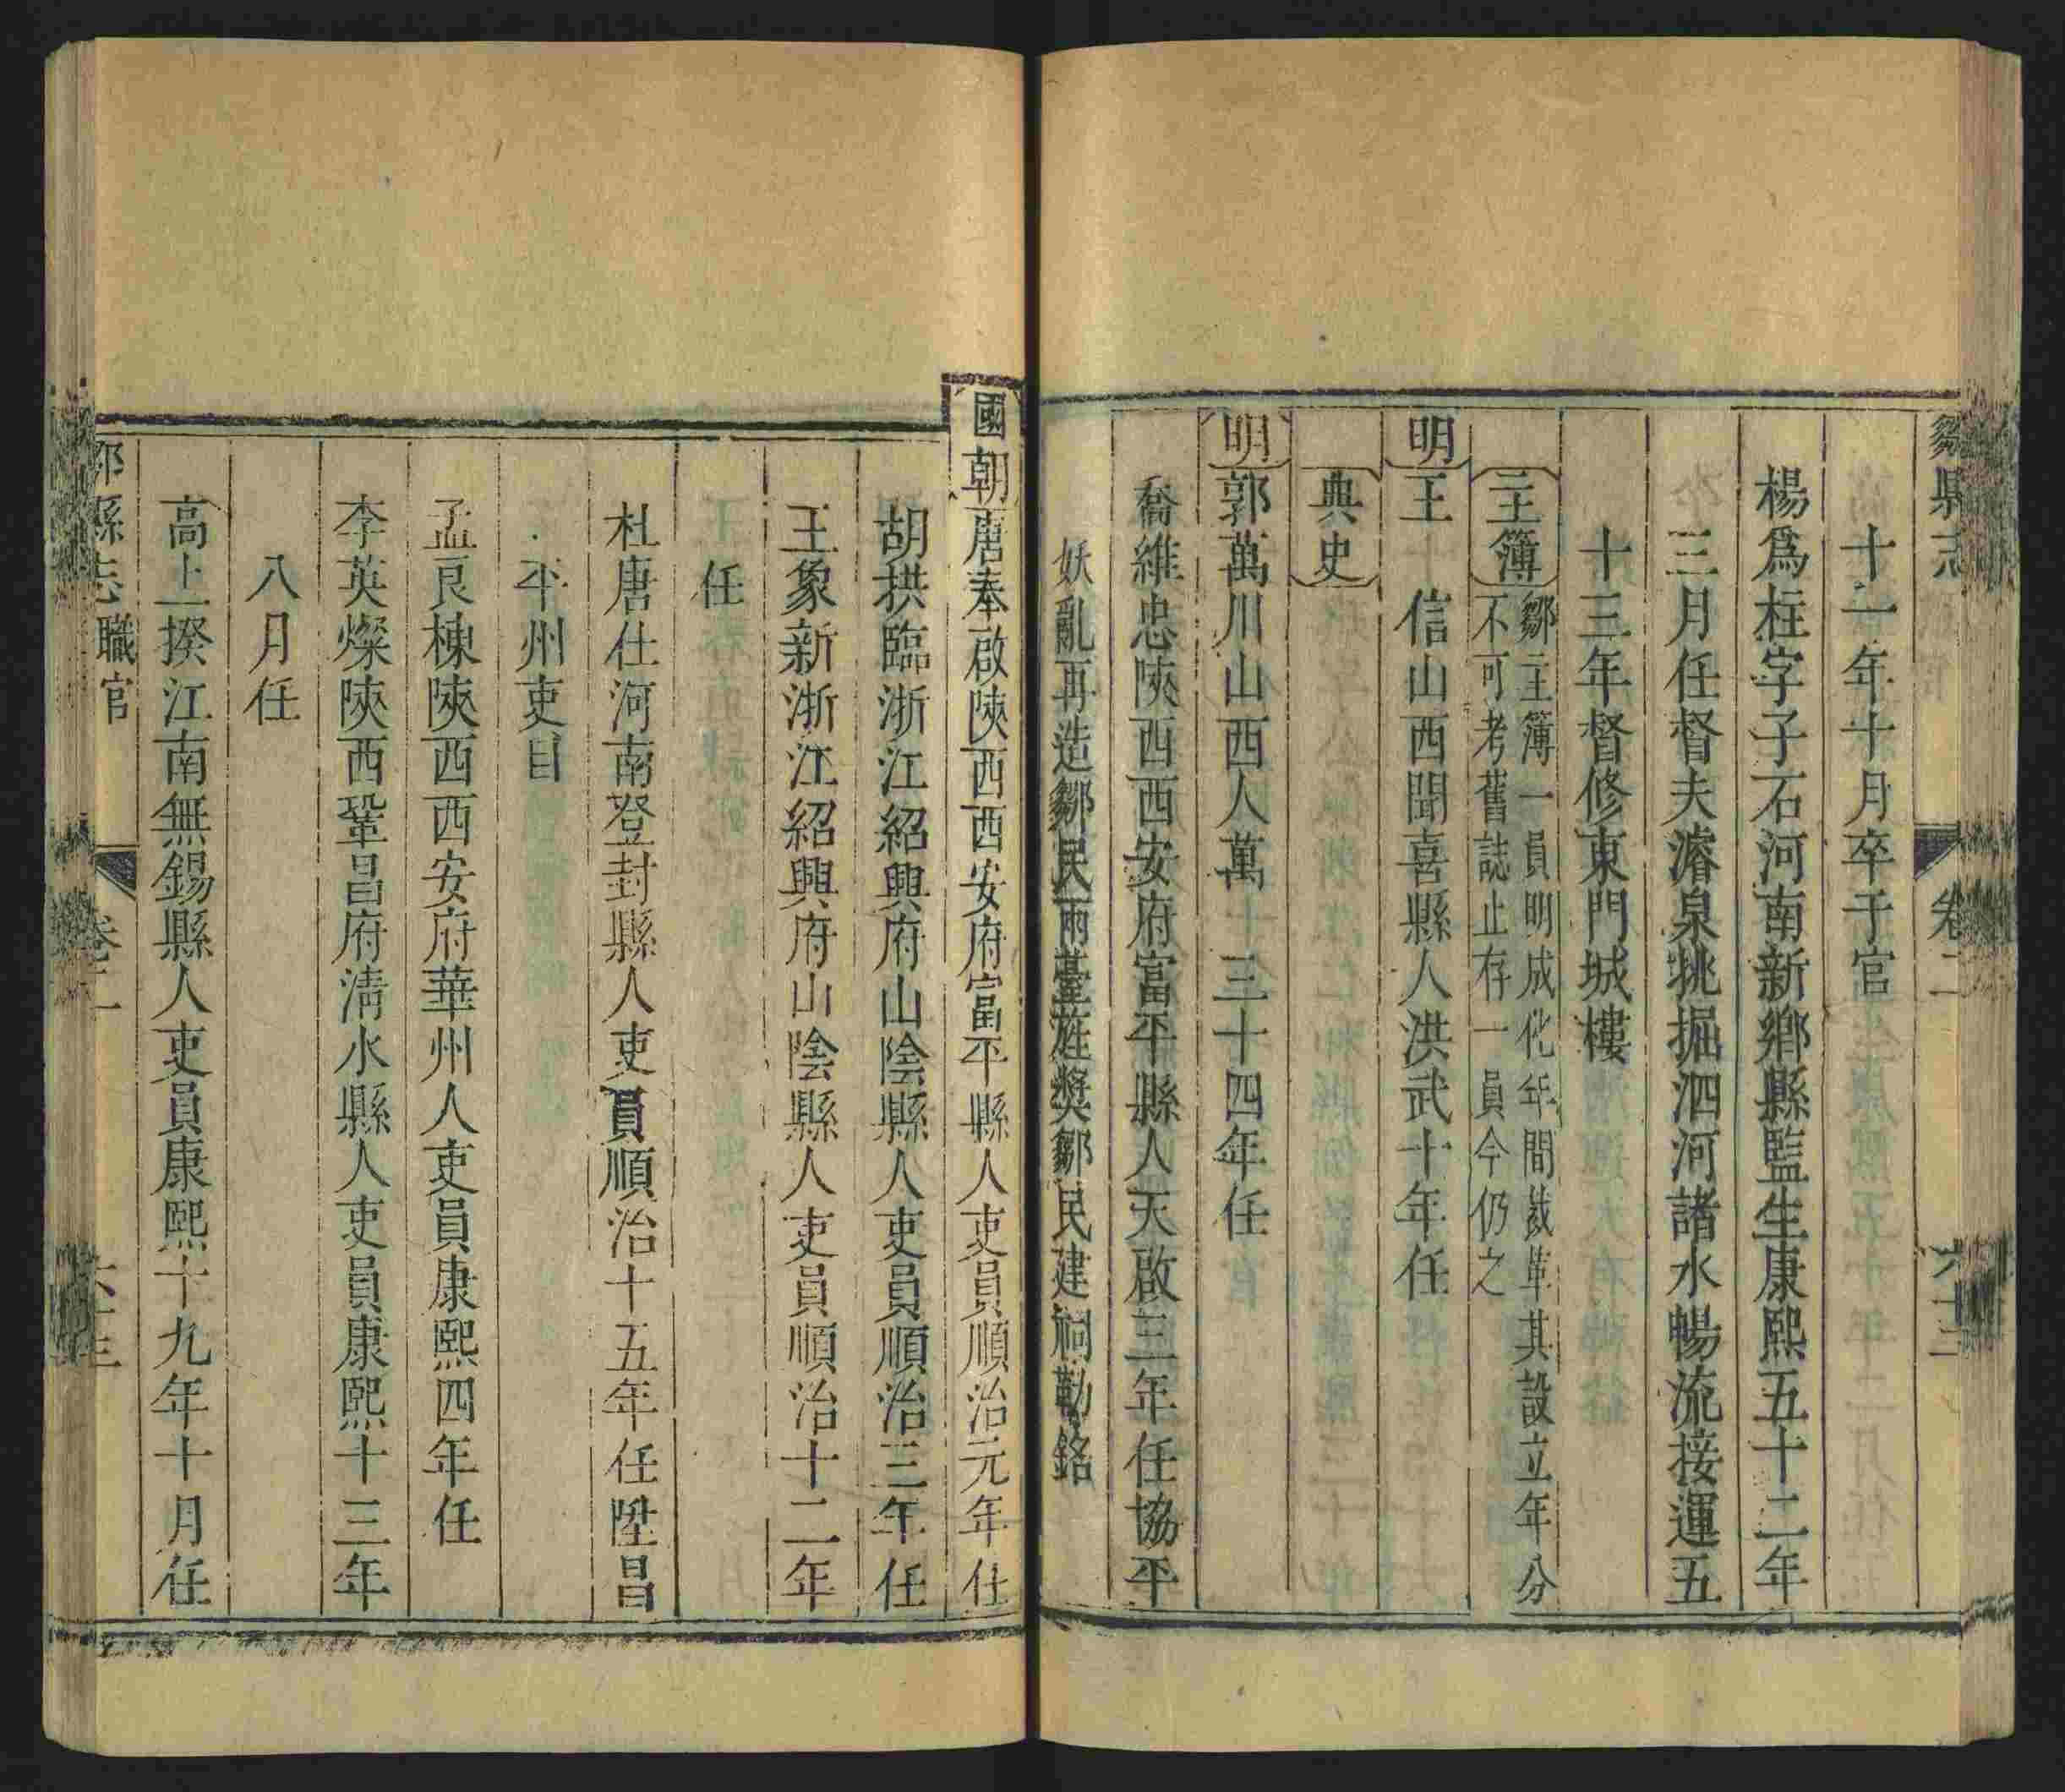 鄒縣志 卷二 六十三
十一年十月卒于官
楊爲柱字子石河南新鄉縣監生康熙五十二年
三月任督夫濬泉挑掘泗河諸水暢流接運五
十三年督修東門城樓
主簿
鄒主簿一員明成化年間裁革其設立年分
不可考舊誌止存一員今仍之
明王 信山西聞喜縣人洪武十年任
典史
明郭萬川山西人萬十三十四年任
喬維忠陝西西安府富平縣人天啟三年任協平
妖亂再造鄒民兩臺旌奬鄒民建祠勒銘
國朝唐奉啟陝西西安府富平縣人吏員順治元年任
胡拱臨浙江紹興府山陰縣人吏員順治三年任
王象新浙江紹興府山陰縣人吏員順治十二年
任
杜唐仕河南登封縣人吏員順治十五年任陞昌
平州吏目
孟良棟陝西西安府華州人吏員康熙四年任
李英燦陝西鞏昌府淸水縣人吏員康熙十三年
八月任
高上揆江南無錫縣人吏員康熙十九年十月任
縣志 職官 卷二